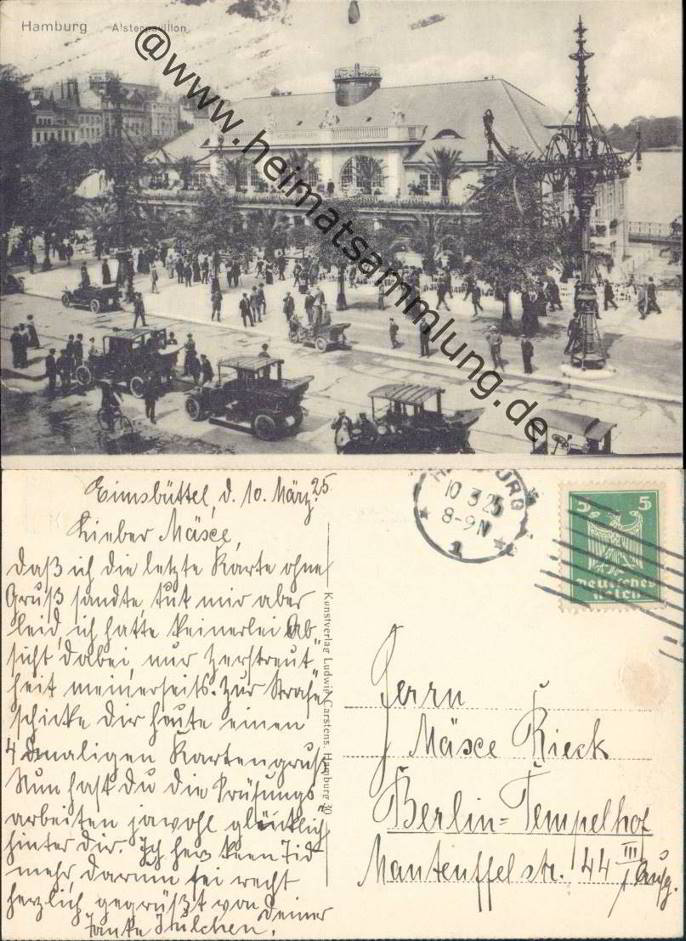 Hamburg Alsterpavillon
@www.heimatsammlung.de
Eimsbüttel, d. 10. März 25
Lieber Mäxce,
daß ich die letzte Karte ohne
Gruß sandte tut mir aber
leid, ich hatte keinerlei Ab-
sicht dabei, nur Zerstreut-
heit meinerseits. Zur Strafe
schicke Dir heute einen
4 maligen Kartengruß.
Nun hast du die Prüfungs-
arbeiten jawohl glücklich
hinter dir. Ich hew keen Tid
mehr, darum sei recht
herzlich gegrüßt von Deiner
Tante Julchen.
Kunstverlag Ludwig Carstens, Hamburg 30
HAMBURG
10 3 25
8-9 N
1
5 5
Deutsches
Reich
Herrn
Mäxce Rieck
Berlin-Tempelhof
Manteuffelstr. 44 III
Aufg.